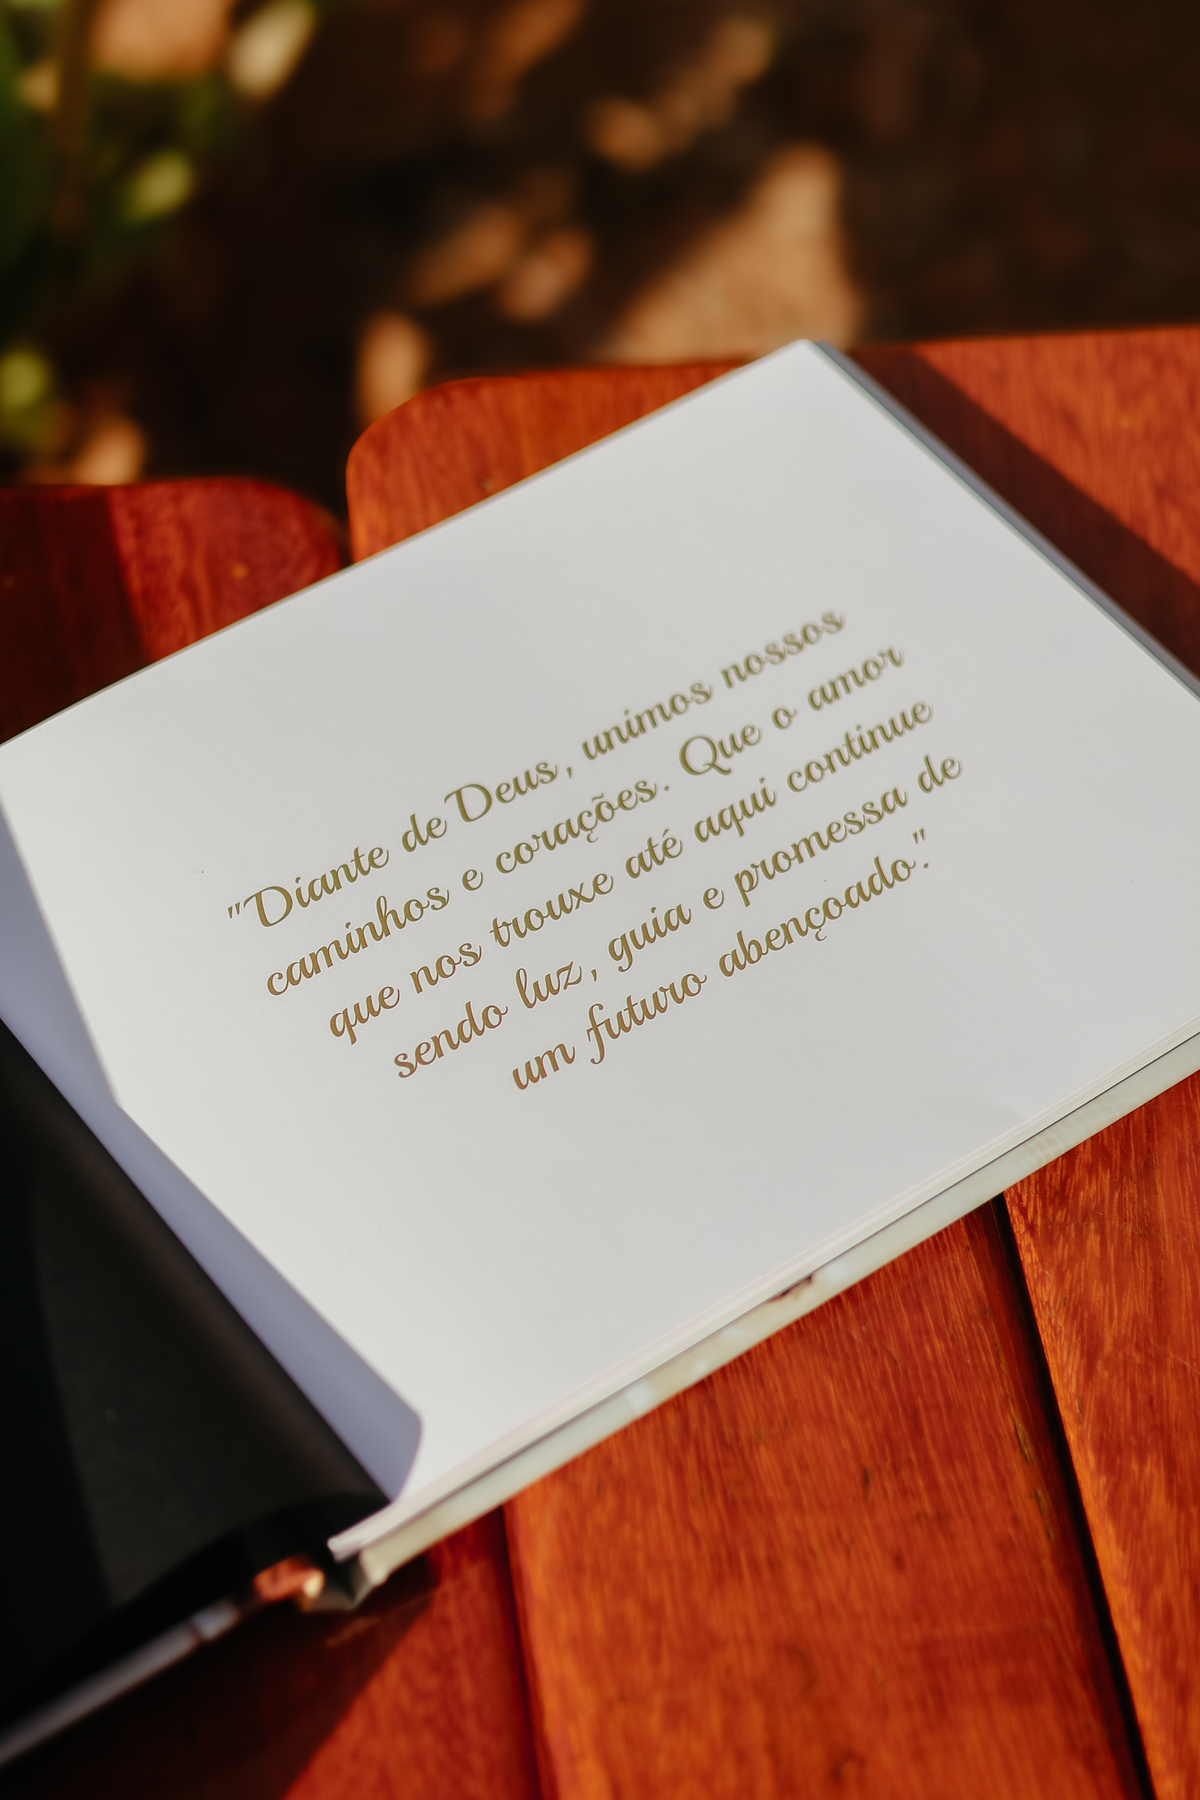 "Diante de Deus, unimos nossos
caminhos e corações. Que o amor
que nos trouxe até aqui continue
sendo luz, guia e promessa de
um futuro abençoado".